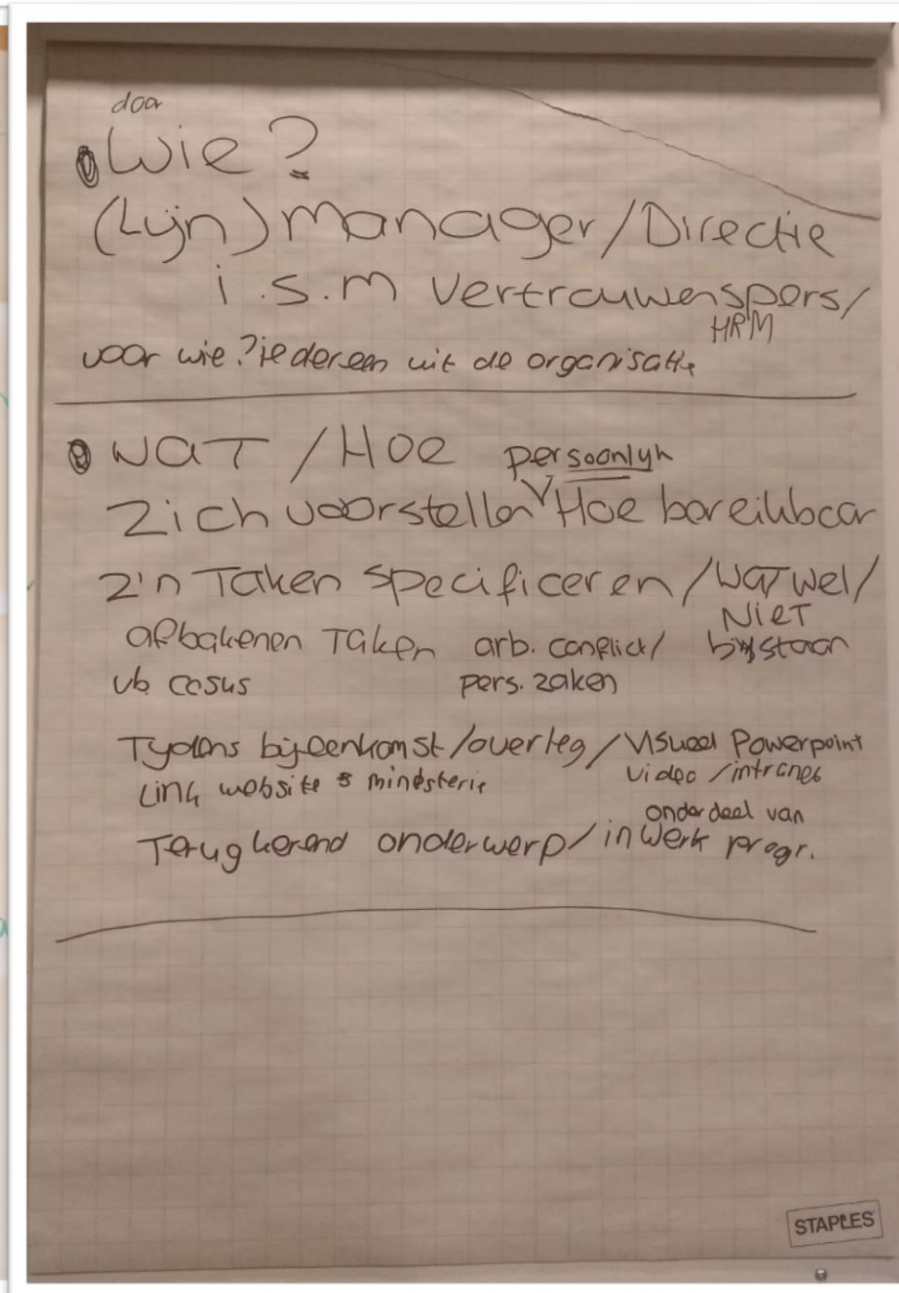 door
Wie?
(Lijn) manager/Directie
i.s.m vertrouwenspers/
HRM
voor wie? iedereen uit de organisatie
WAT / HOE persoonlijk
Zich voorstellen Hoe bereikbaar
z'n Taken specificeren / WAT wel /
NIET
afbakenen Taken arb. conflict/ bijstaan
vb. casus pers. zaken
Tijdens bijeenkomst/overleg / Visueel Powerpoint
Link website ministerie video / intranet
onderdeel van
Terugkerend onderwerp / inwerk progr.
STAPLES